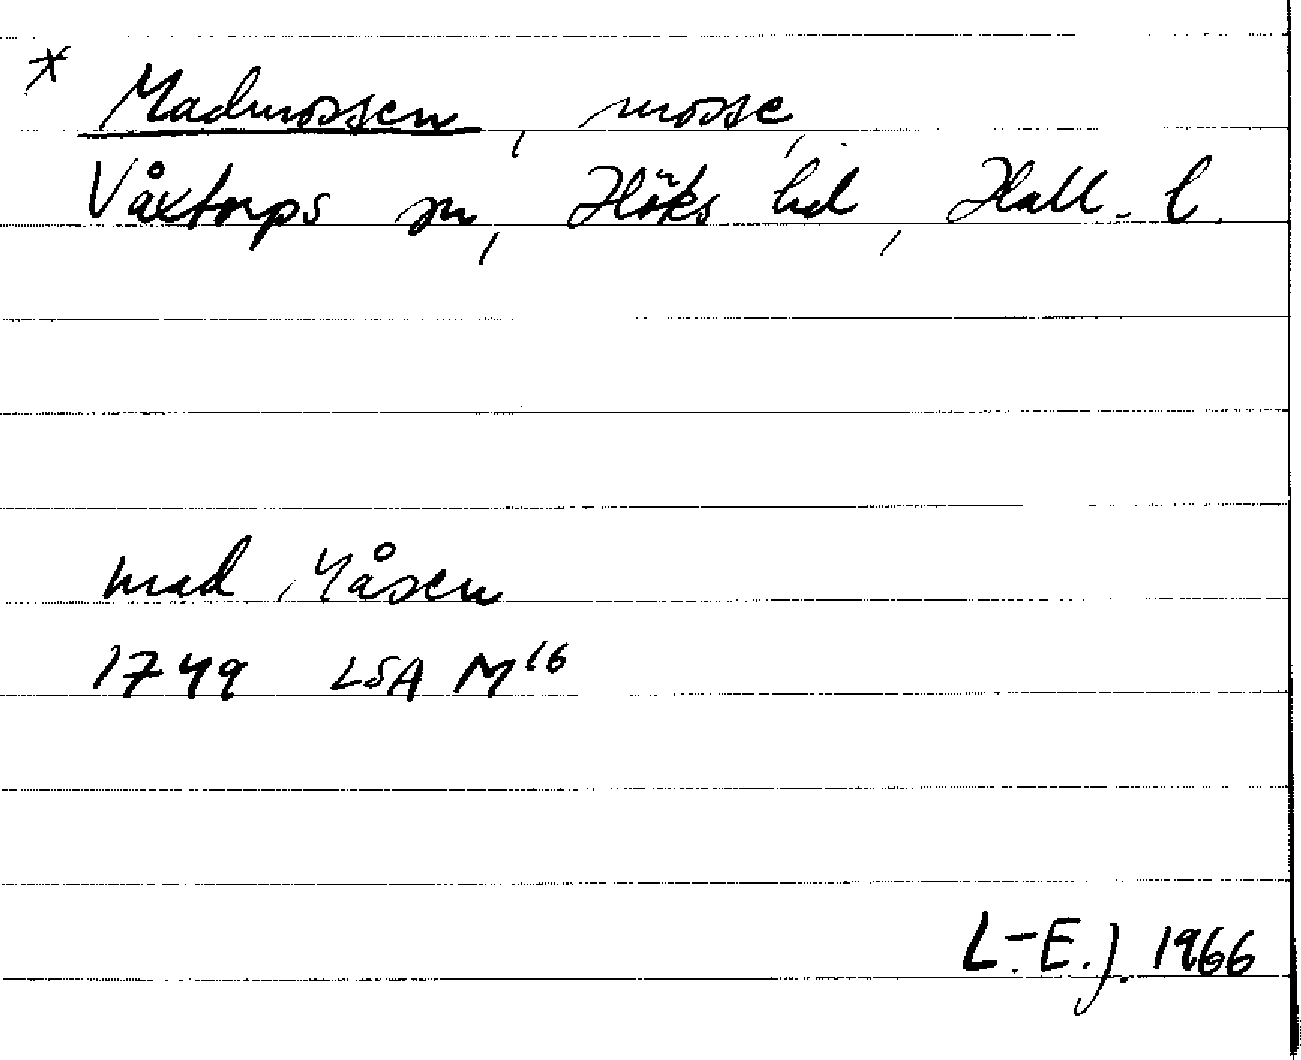 * Madmossen, mosse,
Våxtorps sn, Höks hd, Hall. l.
mad Måsen
1749 LSA M16
L-E.J. 1966